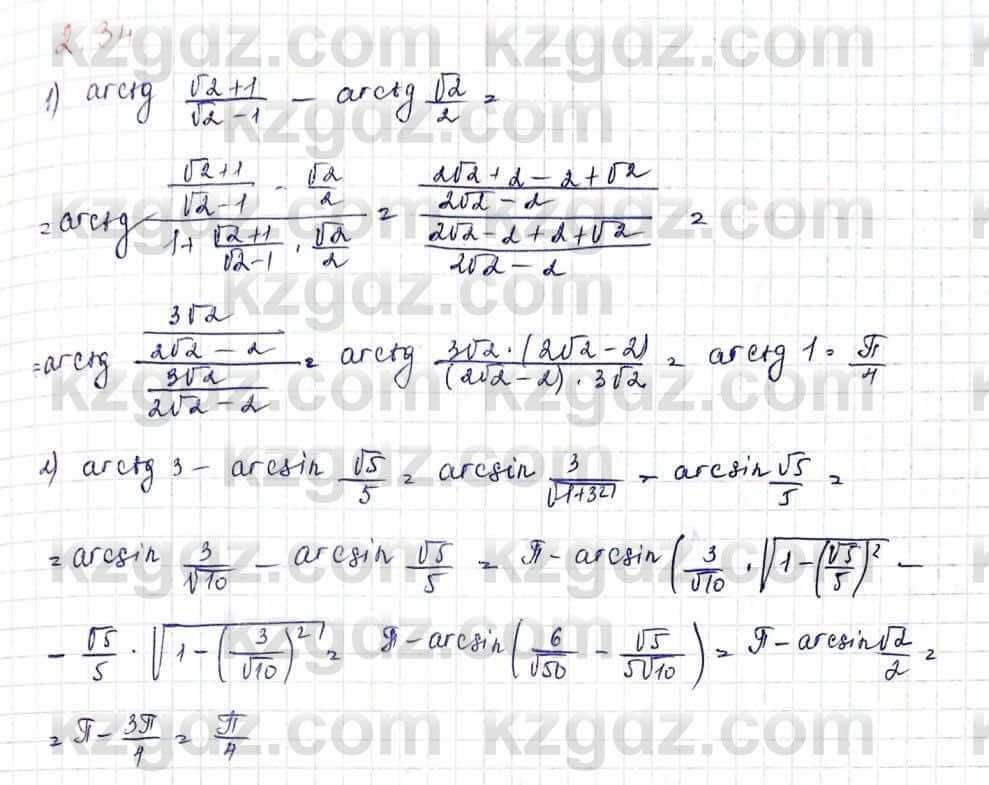 2.34
1) arctg (√2+1)/(√2-1) - arctg √2/2 =
= arctg ((√2+1)/(√2-1) - √2/2)/(1+ (√2+1)/(√2-1) · √2/2) = ((2√2+2-2+√2)/(2√2-2))/((2√2-2+2+√2)/(2√2-2)) =
= arctg (3√2/(2√2-2))/(3√2/(2√2-2)) = arctg (3√2·(2√2-2))/((2√2-2)·3√2) = arctg 1 = π/4
2) arctg 3 - arcsin √5/5 = arcsin 3/√(1+3²) - arcsin √5/5 =
= arcsin 3/√10 - arcsin √5/5 = π - arcsin (3/√10 · √(1-(√5/5)²) -
- √5/5 · √(1-(3/√10)²) = π - arcsin (6/√50 - √5/(5√10)) = π - arcsin √2/2 =
= π - 3π/4 = π/4
kzgdz.com kzgdz.com
kzgdz.com
kzgdz.com kzgdz.com
kzgdz.com
kzgdz.com kzgdz.com
kzgdz.com
kzgdz.com kzgdz.com
kzgdz.com
kzgdz.com kzgdz.com